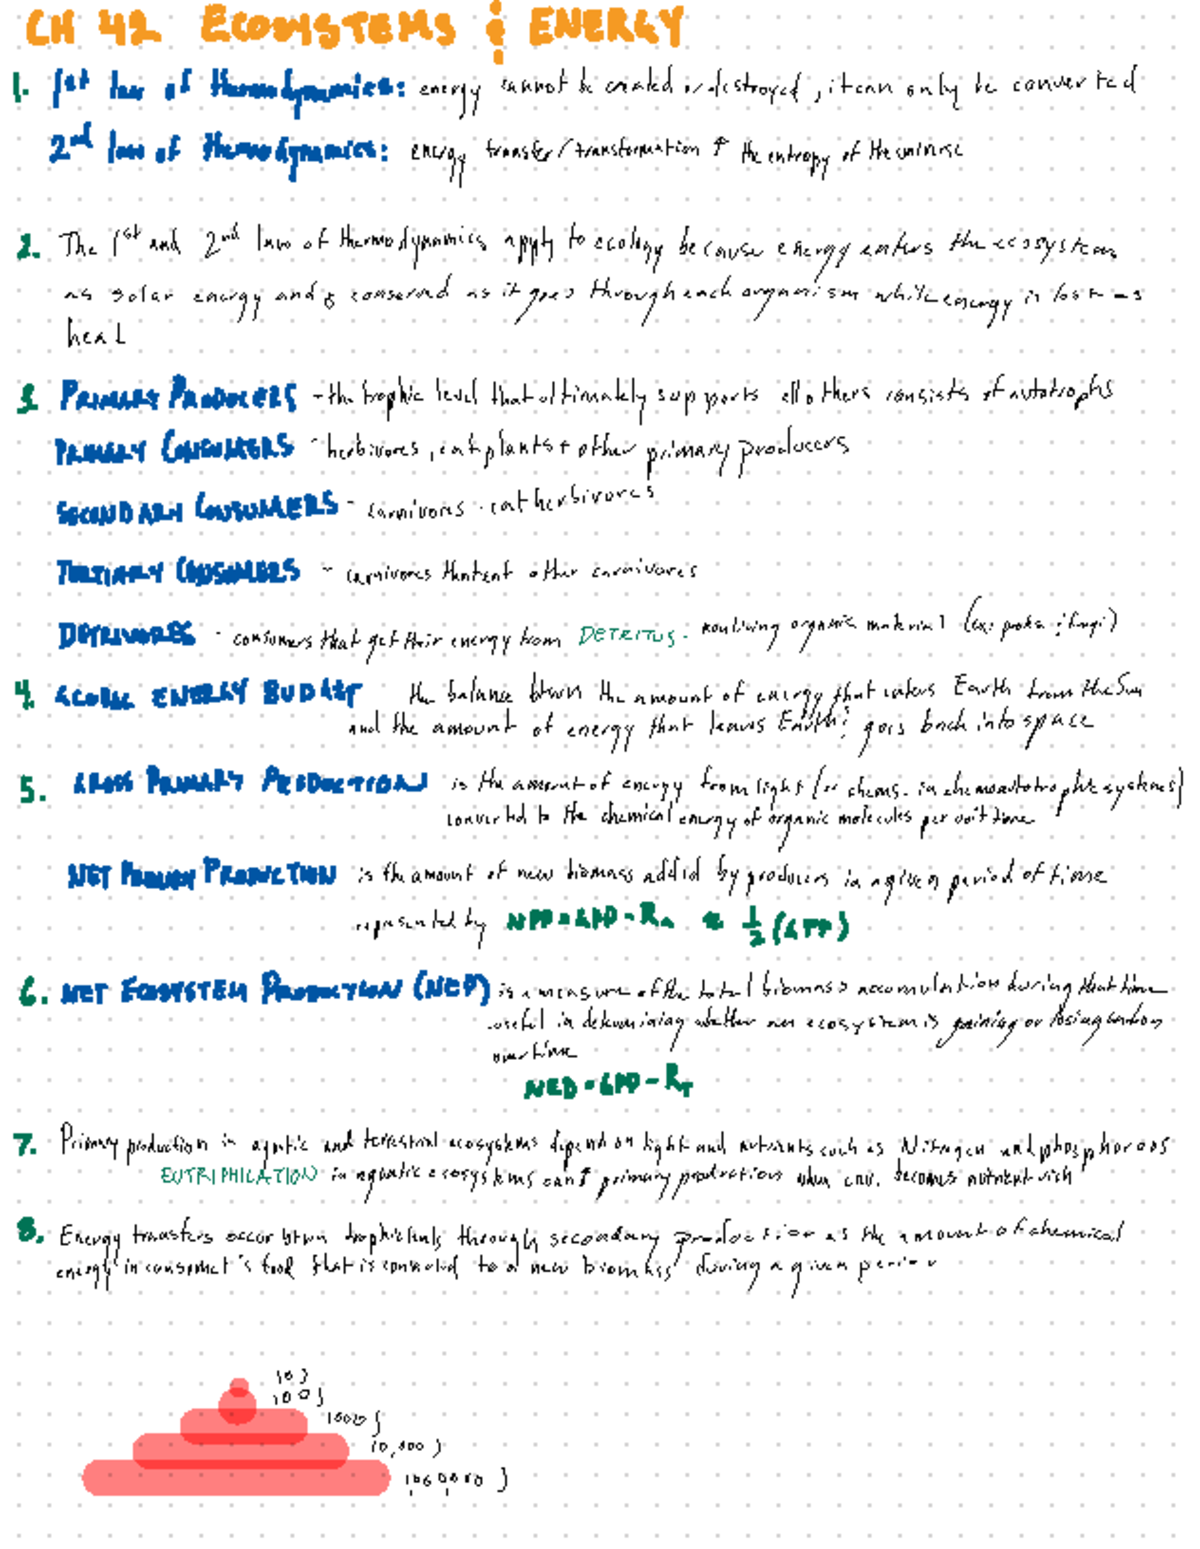 CH 42 ECOSYSTEMS & ENERGY
1. 1st law of thermodynamics: energy cannot be created or destroyed, it can only be converted
2nd law of thermodynamics: energy transfer/transformation ↑ the entropy of the universe
2. The 1st and 2nd law of thermodynamics apply to ecology because energy enters the ecosystem
as solar energy and is conserved as it goes through each organism while energy is lost as
heat
3. PRIMARY PRODUCERS - the trophic level that ultimately supports all others consists of autotrophs
PRIMARY CONSUMERS - herbivores, eat plants + other primary producers
SECONDARY CONSUMERS - carnivores - eat herbivores
TERTIARY CONSUMERS - carnivores that eat other carnivores
DETRIVORES - consumers that get their energy from DETRITUS - nonliving organic material (ex: fungi)
4. GLOBAL ENERGY BUDGET the balance btwn the amount of energy that enters Earth from the Sun
and the amount of energy that leaves Earth & goes back into space
5. GROSS PRIMARY PRODUCTION is the amount of energy from light (or chems. in chemoautotrophic systems)
converted to the chemical energy of organic molecules per unit time
NET PRIMARY PRODUCTION is the amount of new biomass added by producers in a given period of time
represented by NPP = GPP - Ra ≈ 1/2 (GPP)
6. NET ECOSYSTEM PRODUCTION (NEP) is a measure of the total biomass accumulation during that time
useful in determining whether an ecosystem is gaining or losing carbon
over time
NEP = GPP - RT
7. Primary production in aquatic and terrestrial ecosystems depend on light and nutrients such as Nitrogen and phosphorous
EUTRIPHICATION in aquatic ecosystems can ↑ primary productions when env. becomes nutrient rich
8. Energy transfers occur btwn trophic levels through secondary production as the amount of chemical
energy in consumer's food that is converted to a new biomass during a given period
10 J
100 J
1000 J
10,000 J
1,000,000 J